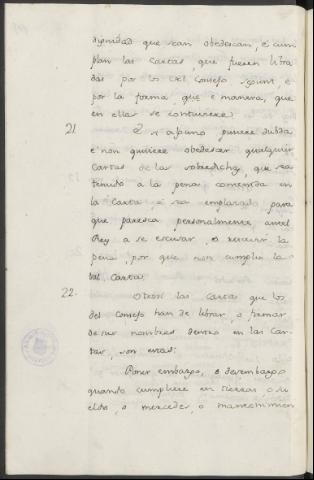 dignidad que sean obedescan, é cum
plan las Cartas, que fueren libra
das por los del Consejo segunt, é
por la forma, que é manera, que
en ellas se contuviere.
21. E si alguno pusiere dubda
é non quisiere obedescer qualquier
Cartas de las sobredichas, que sea
tenudo á la pena contenida en
la Carta, é sea emplazado para
que paresca personalmente antel
Rey a se escusar, o rescevir la
pena, por que non cumplió la
tal Carta.
22. Otrosi las Cartas que los
del Consejo han de librar, o firmar
de sus nombres dentro en las Car
tas, son estas:
Poner embargo, o desembargo
quando cumpliere en tierras o su
eldos, o mercedes, o mantenimien